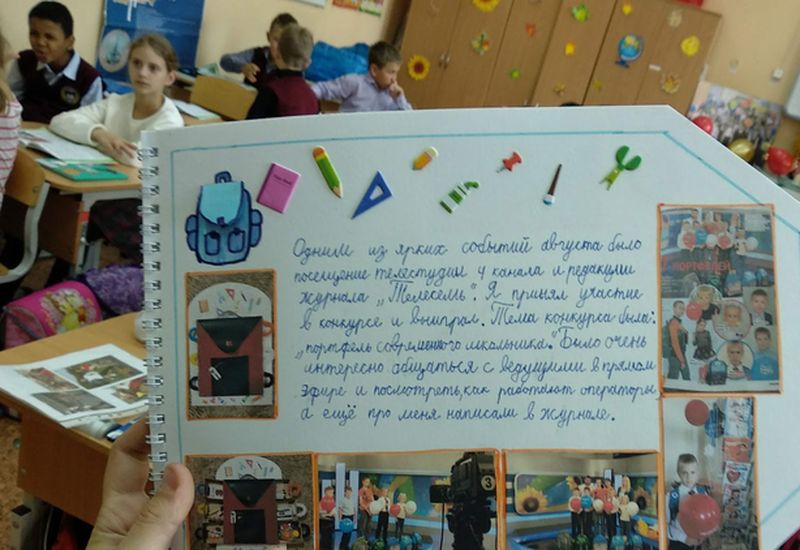 Одним из ярких событий августа было
посещение телестудии 4 канала и редакции
журнала „Телесемь". Я принял участие
в конкурсе и выиграл. Тема конкурса была:
„портфель современного школьника." Было очень
интересно общаться с ведущими в прямом
эфире и посмотреть, как работают операторы,
а ещё про меня написали в журнале.
ПОРТФЕЛЕЙ
3